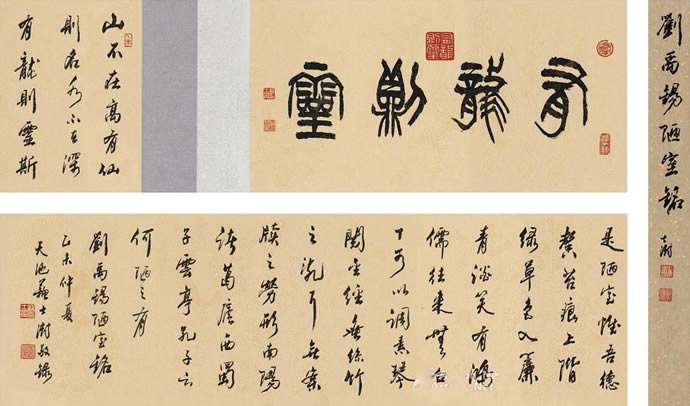 劉禹錫陋室銘
士澍
有龍則靈
山不在高有仙
則名水不在深
有龍則靈斯
是陋室惟吾德
馨苔痕上階
綠草色入簾
青談笑有鴻
儒往來無白
丁可以調素琴
閱金經無絲竹
之亂耳無案
牘之勞形南陽
諸葛廬西蜀
子雲亭孔子云
何陋之有
劉禹錫陋室銘
乙未仲夏
天池蘇士澍敬錄